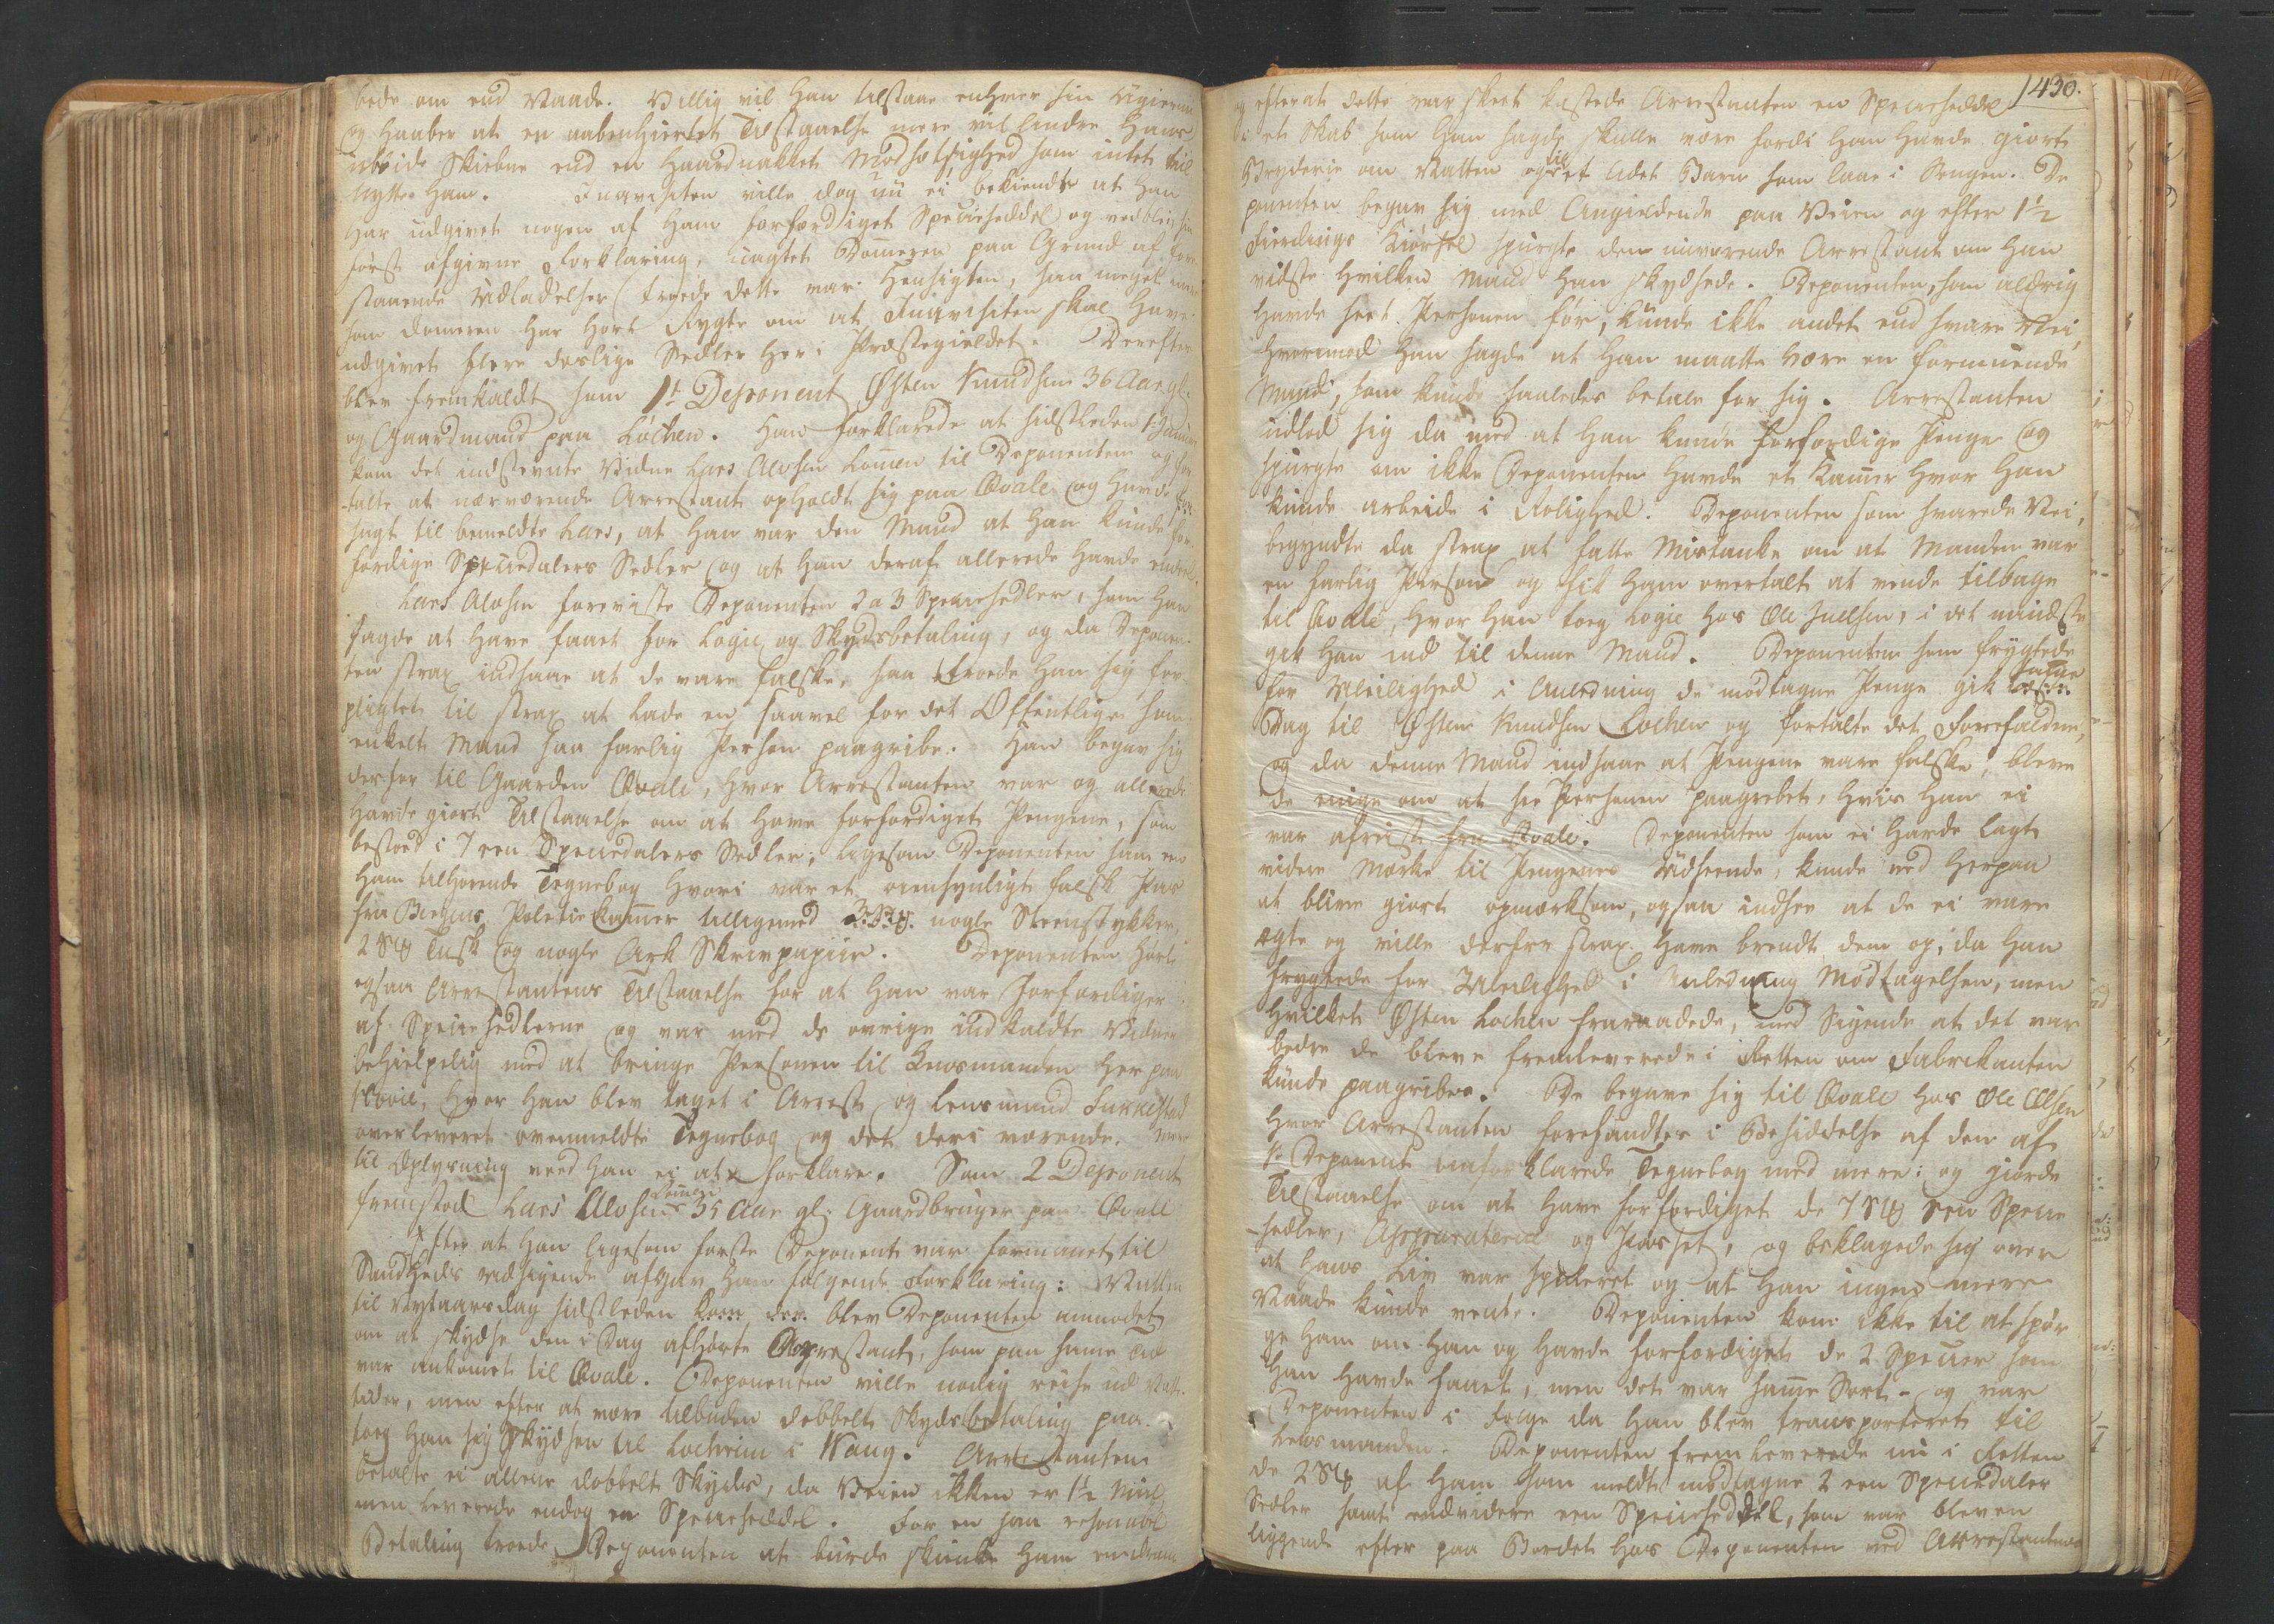 bede om end Naade. Villig vil han tilstaae enhver sin Gierning
og haaber at en aabenhiertet Tilstaaelse mere vil lindre hans
ublide Skiebne end en haardnakket Modsætlighed som intet kan
nytte ham. Inqvisiten ville dog nu ei bekiende at han
har udgivet nogen af ham forfærdiget Specieseddel og ved blev sin
først afgivne Forklaring, uagtet Dommeren paa Grund af fore-
staaende Udladelser troede dette var Hensigten, saa meget mere
som Domeren har hørt Rygte om at Inqvisiten skal have
udgivet flere deslige Sedler her i Præstegieldet. Derefter
blev fremkaldt som 1t Deponent Østen Knudsen 36 Aar gl.
og Gaardmand paa Lochen. Han forklarede at sidstleden 1 Januar
kom det indstevnte Vidne Lars Alvsen Lomen til Deponenten og for
talte at nærværende Arrestant opholdt sig paa Qvale og havde
sagt til bemeldte Lars, at han var den Mand at han kunde for-
færdige Speciedalers Sedler og at han deraf allerede havde endel.
Lars Alvsen foreviste Deponenten 2 a 3 Speciesedler, som han
sagde at have faaet for Logie og Skydsbetaling, og da Deponen-
ten strax indsaae at de vare falske, saa troede han sig for
pligtet til strax at lade en saavel for det Offentlige som
enkelt Mand saa farlig Person paagribe. Han begav sig
derfor til Gaarden Qvale, hvor Arrestanten var og allerede
havde giort Tilstaaelse om at have forfærdiget Pengene, som
bestoed i 7 een Speciedalers Sedler, ligesom Deponenten saae en
ham tilhørende Tegnebog hvori var et øiensynligt falsk Pas
fra Bergens Politiekammer tilligemed nogle Steenstykker,
2 Sk Tusk og nogle Ark Skrivpapiir. Deponenten hørte
ogsaa Arrestantens Tilstaaelse for at han var Forfærdiger
af Speciesedlerne og var med de øvrige indkaldte Vidner
behielpelig med at bringe Personen til Lensmanden her paa
hvor han blev taget i Arrest og Lensmand
overleveret ovenmeldte Tegnebog og det deri værende. Mere
til Oplysning veed han ei at forklare. Som 2 Deponent
fremstod Lars Alvsen Lomen 35 Aar gl. Gaardbruger paa Qvale
Efter at han ligesom første Deponent var formanet til
Sandheds udsigende afgav han følgende Forklaring: Natten
til Nytaarsdag sidstleden blev Deponenten anmodet
om at skydse den i Dag afhørte Arrestant, som paa samme Tid
var ankommet til Qvale. Deponenten ville nødig reise ud Natte-
tider, men efter at være tilbuden dobbelt Skydsbetaling paa-
toeg han sig Skydsen til Locheim i Vang. Arrestanten
betalte ei allene dobbelt Skyds, da Veien ikken er 1½ Miil,
men leverede endog en Specieseddel. For en saa
Betaling troede Deponenten at burde skienke ham en dram
1430.
og efter at dette var skeet kastede Arrestanten en Specieseddel
i et Skab som han sagde skulle være fordi han havde giort
Bryderie om Natten og til et lidet Barn som laae i Sengen. De
ponenten begav sig med Angieldende paa Veien og efter 1½
Fierdings Kiørsel spurgte den nuværende Arrestant om han
vidste hvilken Mand han skydsede. Deponenten, som aldrig
havde seet Personen før, kunde ikke andet end svare Nei,
hvorimod han sagde at han maatte være en formuende
Mand, som kunde saaledes betale for sig. Arrestanten
udlod sig da med at han kunde forfærdige Penge og
spurgte om ikke Deponenten havde et Kammer hvor han
kunde arbeide i Rolighed. Deponenten som svarede Nei,
begyndte da strax at fatte Mistanke om at Manden var
en farlig Person og fik ham overtalt at vende tilbage
til Qvale, hvor han toeg Logie hos Ole Juelsen, i det mindste
gik han ind til denne Mand. Deponenten som frygtede
for Uleilighed i Anledning de modtagne Penge gik samme
Dag til Østen Knudsen Lochen og fortalte det Forefaldne,
og da denne Mand indsaae at Pengene vare falske, bleve
de enige om at see Personen paagrebet, hvis han ei
var afreist fra Qvale. Deponenten som ei havde lagt
videre Mærke til Pengenes Udseende, kunde ved herpaa
at blive giort opmærksom, ogsaa indsee at de ei vare
ægte og ville derfor strax have brendt dem op, da han
frygtede for Uleilighed i Anledning Modtagelsen, men
hvilket Østen Lochen fraraadede, med Sigende at det var
bedre de bleve fremleverede i Retten om Fabrikanten
kunde paagribes. De begave sig til Qvale hos Ole Olsen
hvor Arrestanten forefandtes i Besiddelse af den af
1te Deponent forklarede Tegnebog med mere: og giorde
Tilstaaelse om at have forfærdiget de 7 Stk een Specie
sedler, Apparaterne og Passet, og beklagede sig over
at hans Liv var spilleret og at han ingen mere
Naade kunde vente. Deponenten kom ikke til at spør
ge ham om han og havde forfærdiget de 2 Specier som
han havde faaet, men det var samme Sort - og var
Deponenten i Følge da han blev transporteret til
Lensmanden. Deponenten fremleverede nu i Retten
de 2 Stk af ham som meldt modtagne 2 een Speciedaler
Sedler samt endvidere een Specieseddel, som var bleven
liggende efter paa Bordet hos Deponenten ved Arrestantens